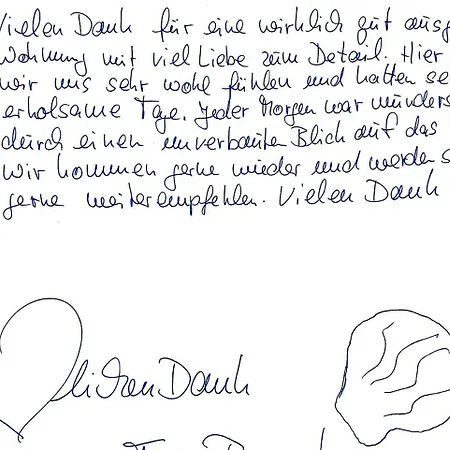 Vielen Dank für eine wirklich gut ausg
Wohnung mit viel Liebe zum Detail. Hier
wir uns sehr wohl fühlen und hatten se
erholsame Tage. Jeder Morgen war wunders
durch einen unverbauten Blick auf das
wir kommen gerne wieder und werden s
gerne weiterempfehlen. Vielen Dank
lichen Dank